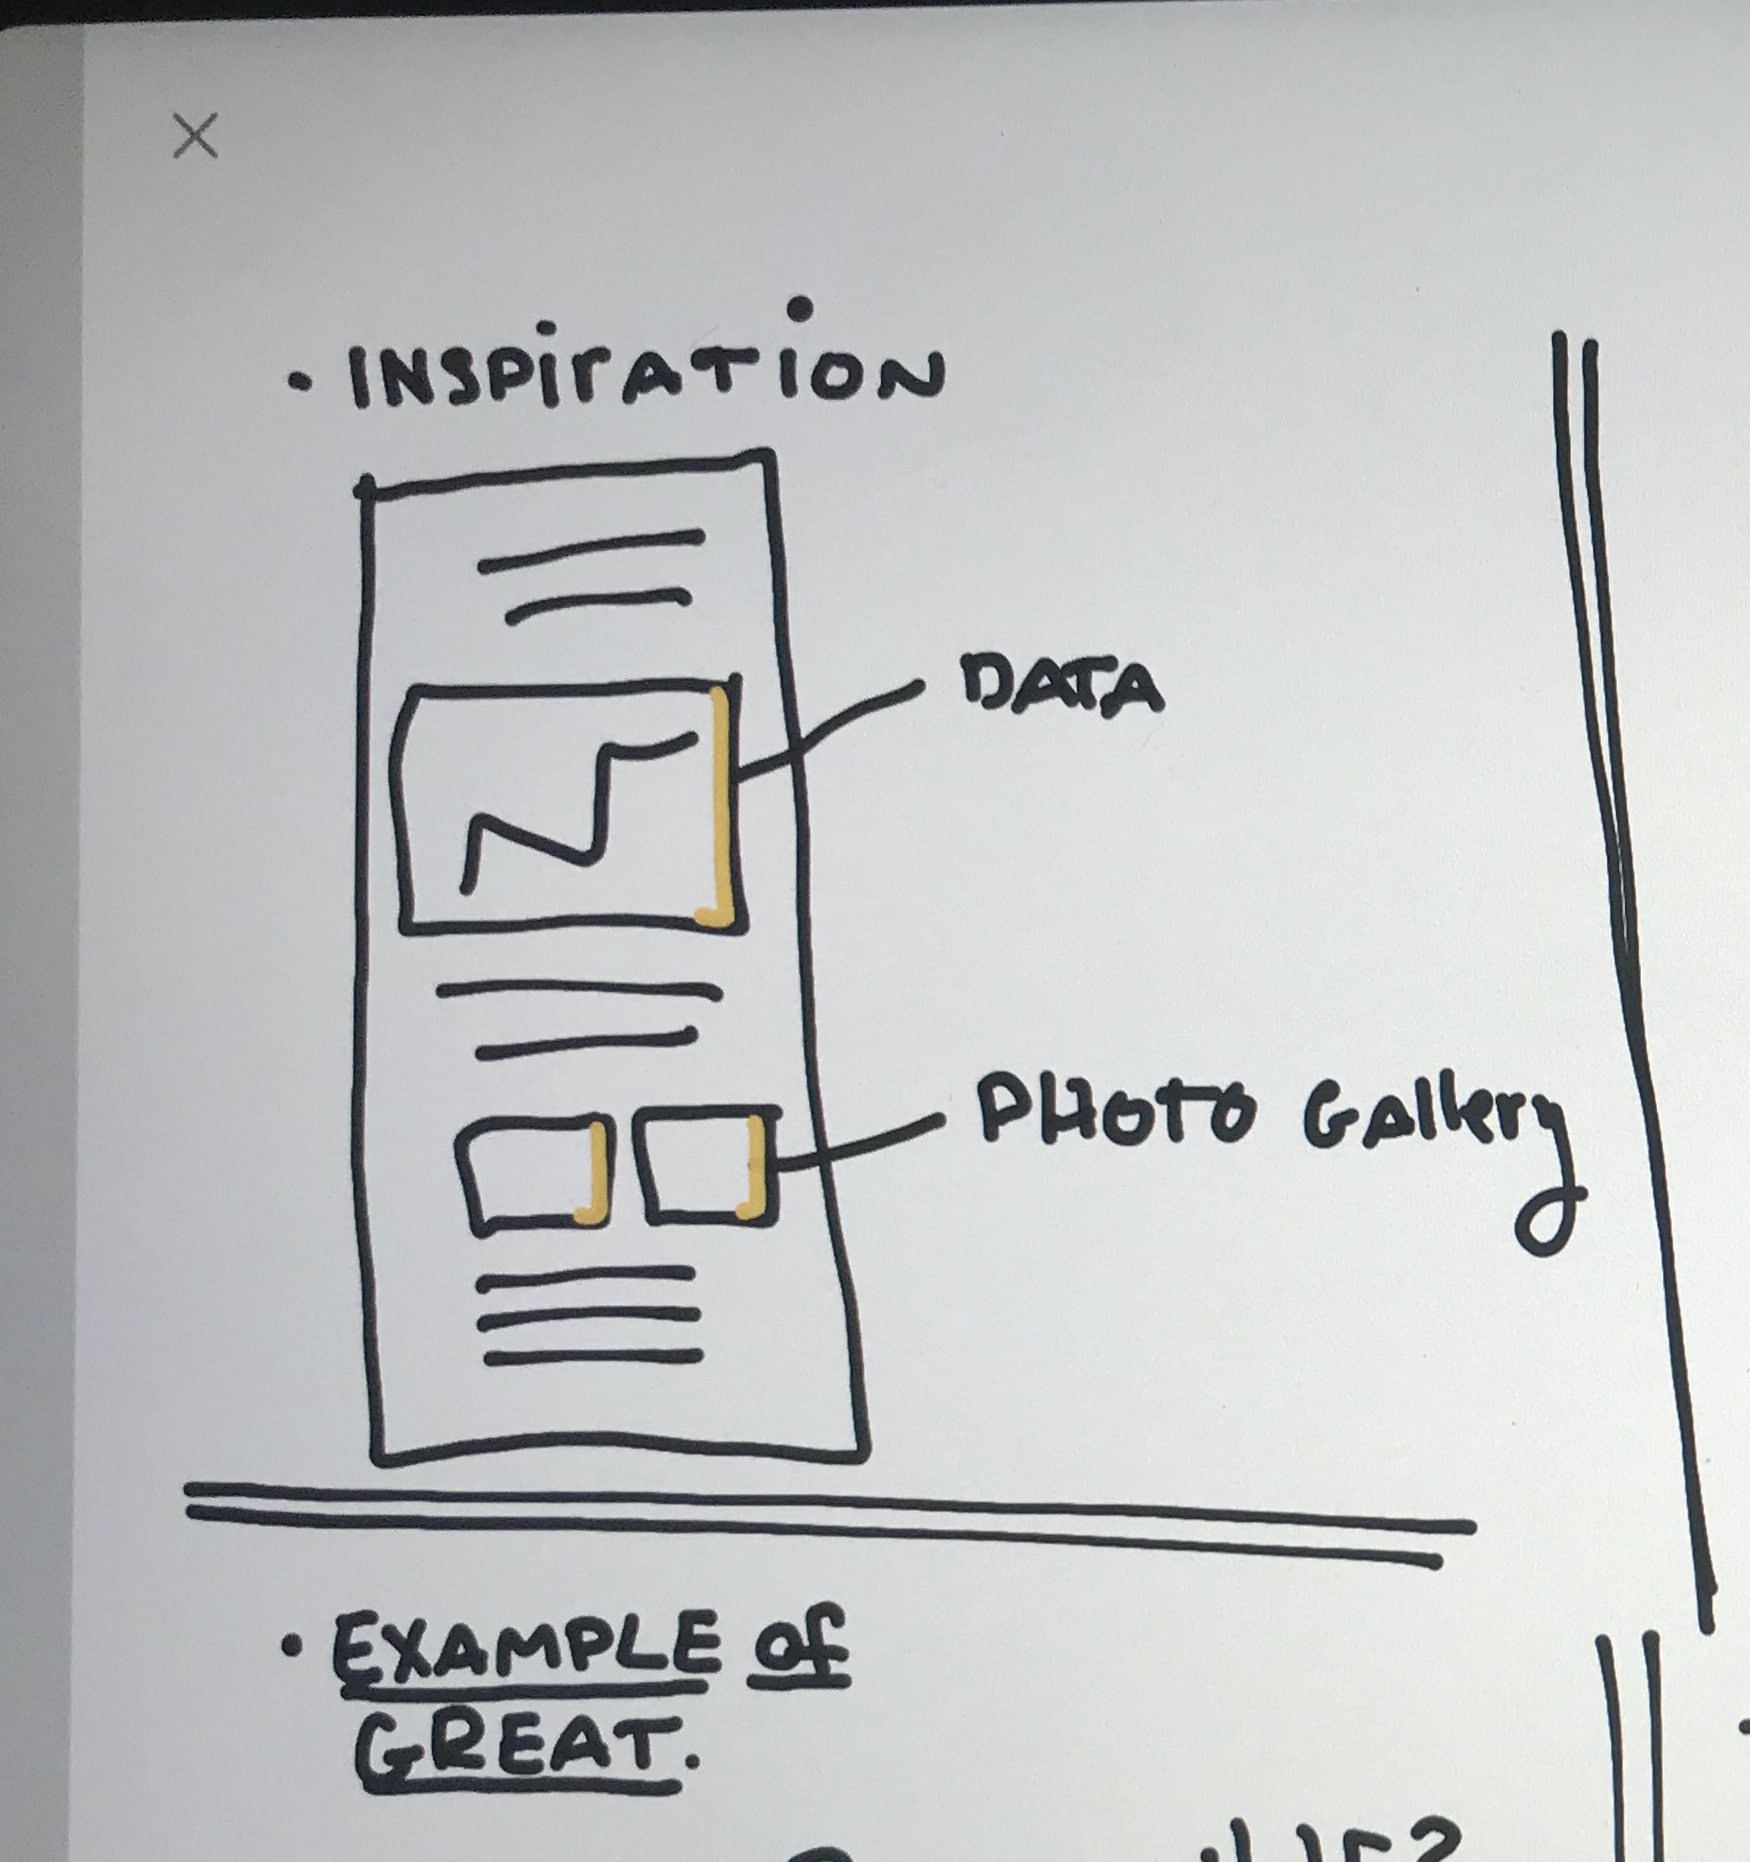 • INSPiRATiON
DATA
PHOTO GAllery
• EXAMPLE of
GREAT.